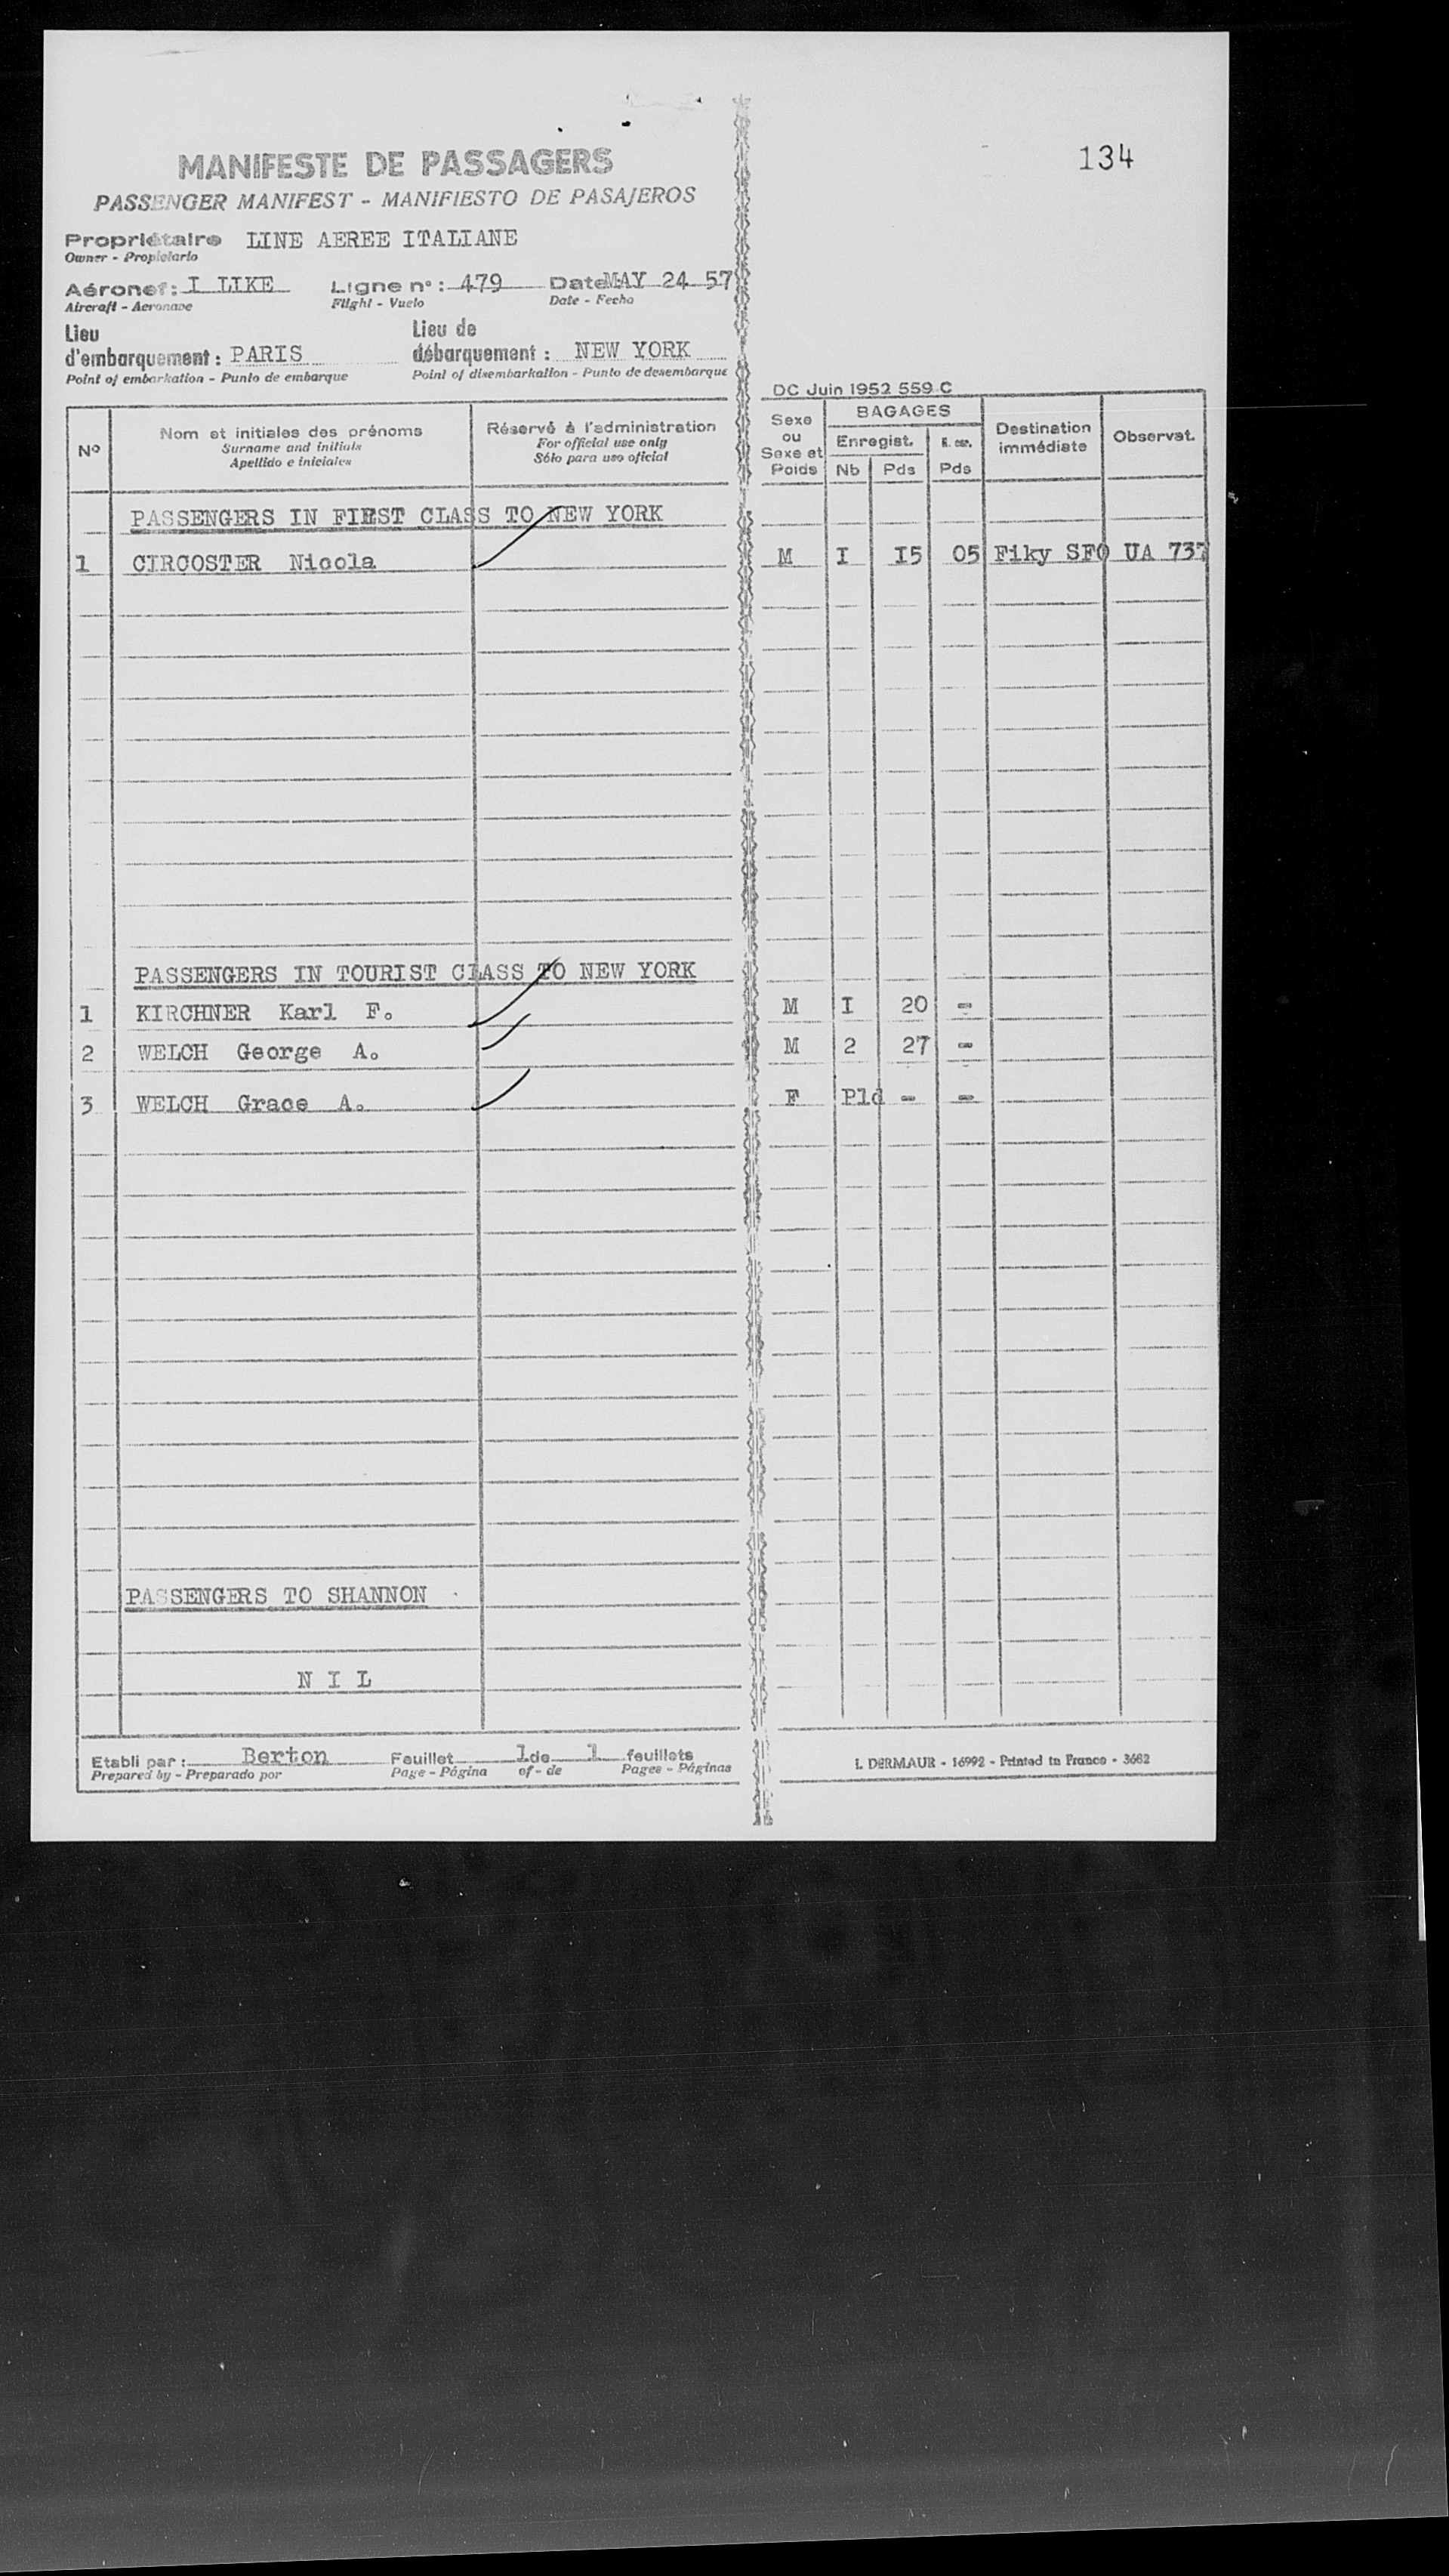 134
MANIFESTE DE PASSAGERS
PASSENGER MANIFEST - MANIFIESTO DE PASAJEROS
Propriétaire LINE AEREE ITALIANE
Owner - Propietario
Aéronef: I LIKE Ligne n°: 479 Date MAY 24 57
Aircraft - Aeronave Flight - Vuelo Date - Fecha
Lieu d'embarquement: PARIS
Point of embarkation - Punto de embarque
Lieu de débarquement: NEW YORK
Point of disembarkation - Punto de desembarque
DC Juin 1952 559 C
N°
Nom et initiales des prénoms
Surname and initials
Apellido e iniciales
Réservé à l'administration
For official use only
Sólo para uso oficial
Sexe
ou
Sexe et
Poids
BAGAGES
Enregist.
Nb Pds
Pds
Destination
immédiate
Observat.
PASSENGERS IN FIRST CLASS TO NEW YORK
1 CIRCOSTER Nicola M I I5 05 Fiky SFO UA 737
PASSENGERS IN TOURIST CLASS TO NEW YORK
1 KIRCHNER Karl F. M I 20 -
2 WELCH George A. M 2 27 -
3 WELCH Grace A. F Pld - -
PASSENGERS TO SHANNON
N I L
Etabli par: Berton Feuillet 1 de 1 feuillets
Prepared by - Preparado por Page - Página of - de Pages - Páginas
L. DERMAUR - 16992 - Printed in France - 3682